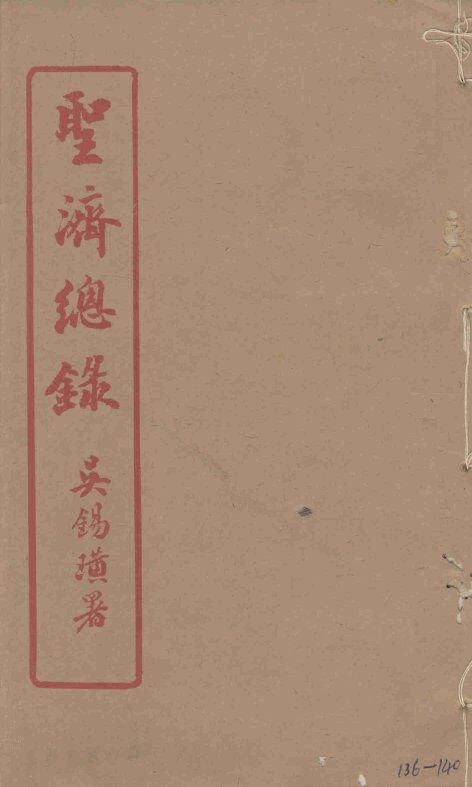 聖濟總錄
吳錫璜署
136-140